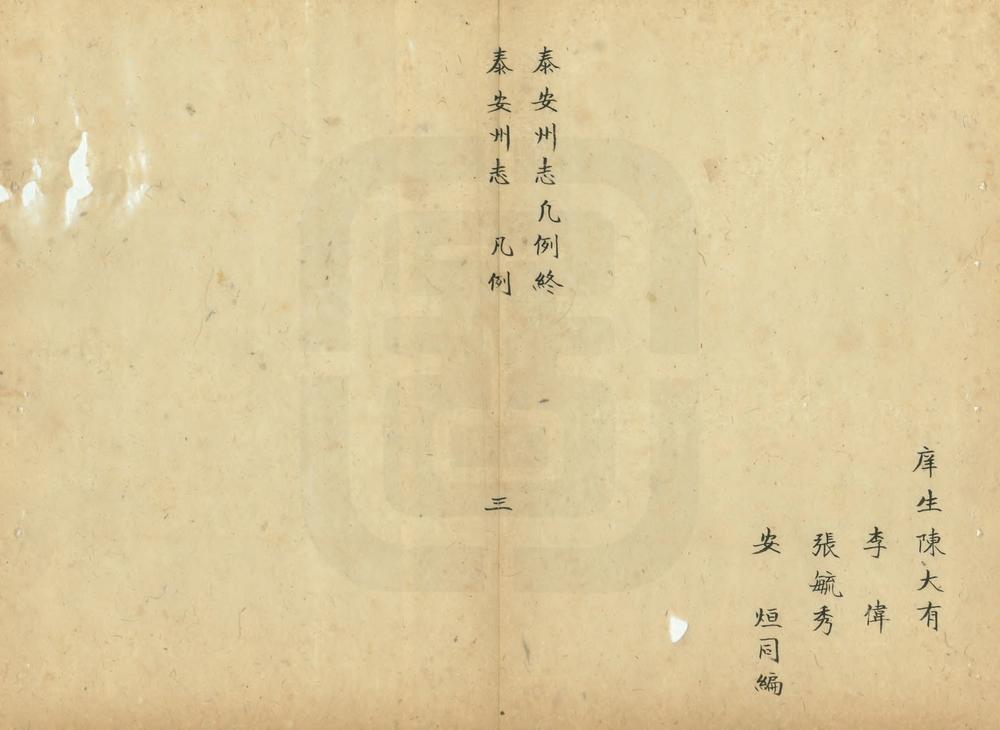 庠生陳大有
李偉
張毓秀
安烜同編
泰安州志凡例終
泰安州志 凡例 三